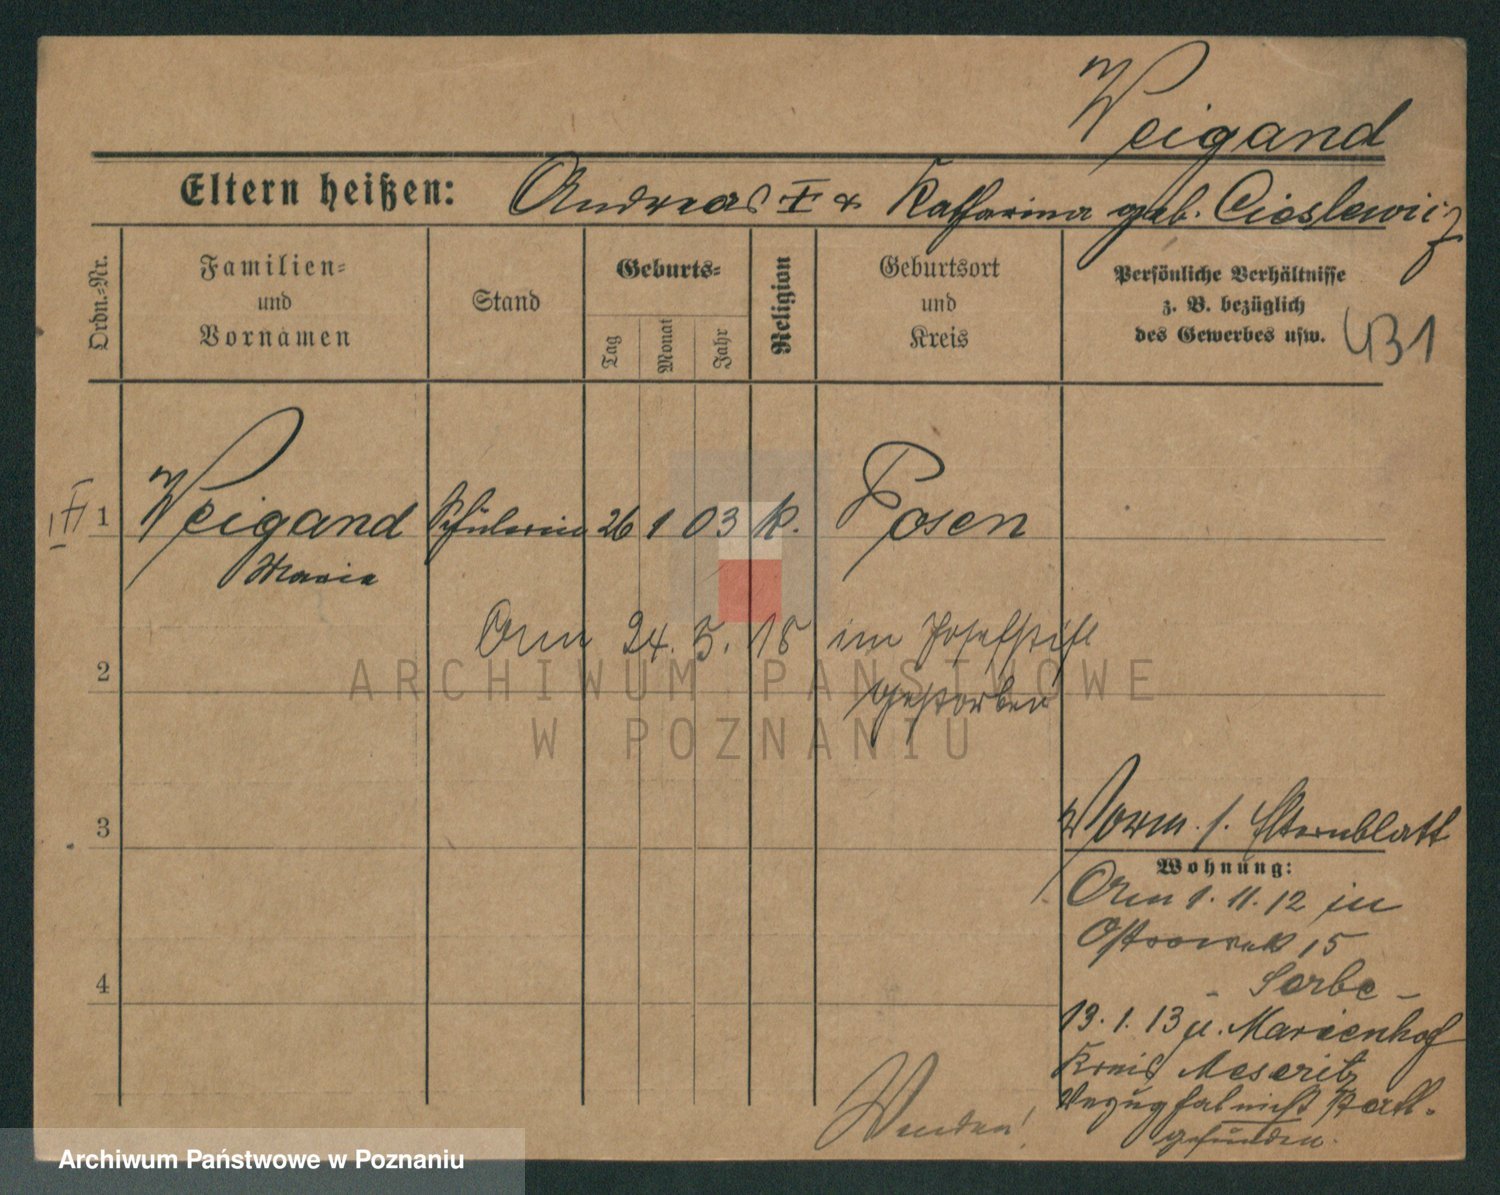 Weigand
Eltern heißen: Andreas † & Katharina geb. Cieslewicz
Ordn.-Nr.
Familien-
und
Vornamen
Stand
Geburts-
Tag
Monat
Jahr
Religion
Geburtsort
und
Kreis
Persönliche Verhältnisse
z. B. bezüglich
des Gewerbes usw.
431
1 Weigand Schülerin 26 1 03 k. Posen
Maria
Am 24. 5. 18 im Josefstift
gestorben
2
3
4
Vorm. s. Elternblatt
Wohnung:
Am 1. 11. 12 in
15
Serbe
13. 1. 13 n. Marienhof
Kreis Meseritz
Wegzug hat nicht statt-
gefunden.
Wenden!
ARCHIWUM PAŃSTWOWE
W POZNANIU
Archiwum Państwowe w Poznaniu